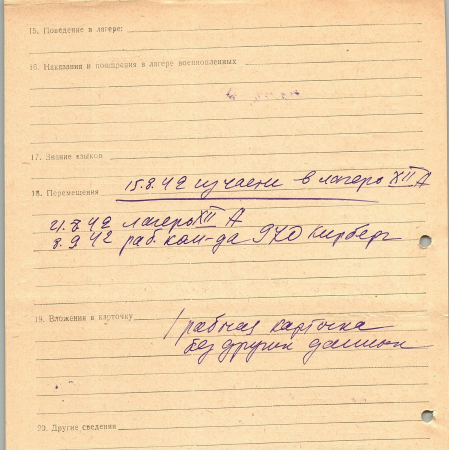 15. Поведение в лагере:
16. Наказания и поощрения в лагере военнопленных
17. Знание языков
18. Перемещения 15.8.42 изъят в лагерь XII A
21.8.42 лагерь XII A
8.9.42 раб. ком-да 940 Кирберг
19. Вложения в карточку 1 рабочая карточка
без других данных
20. Другие сведения